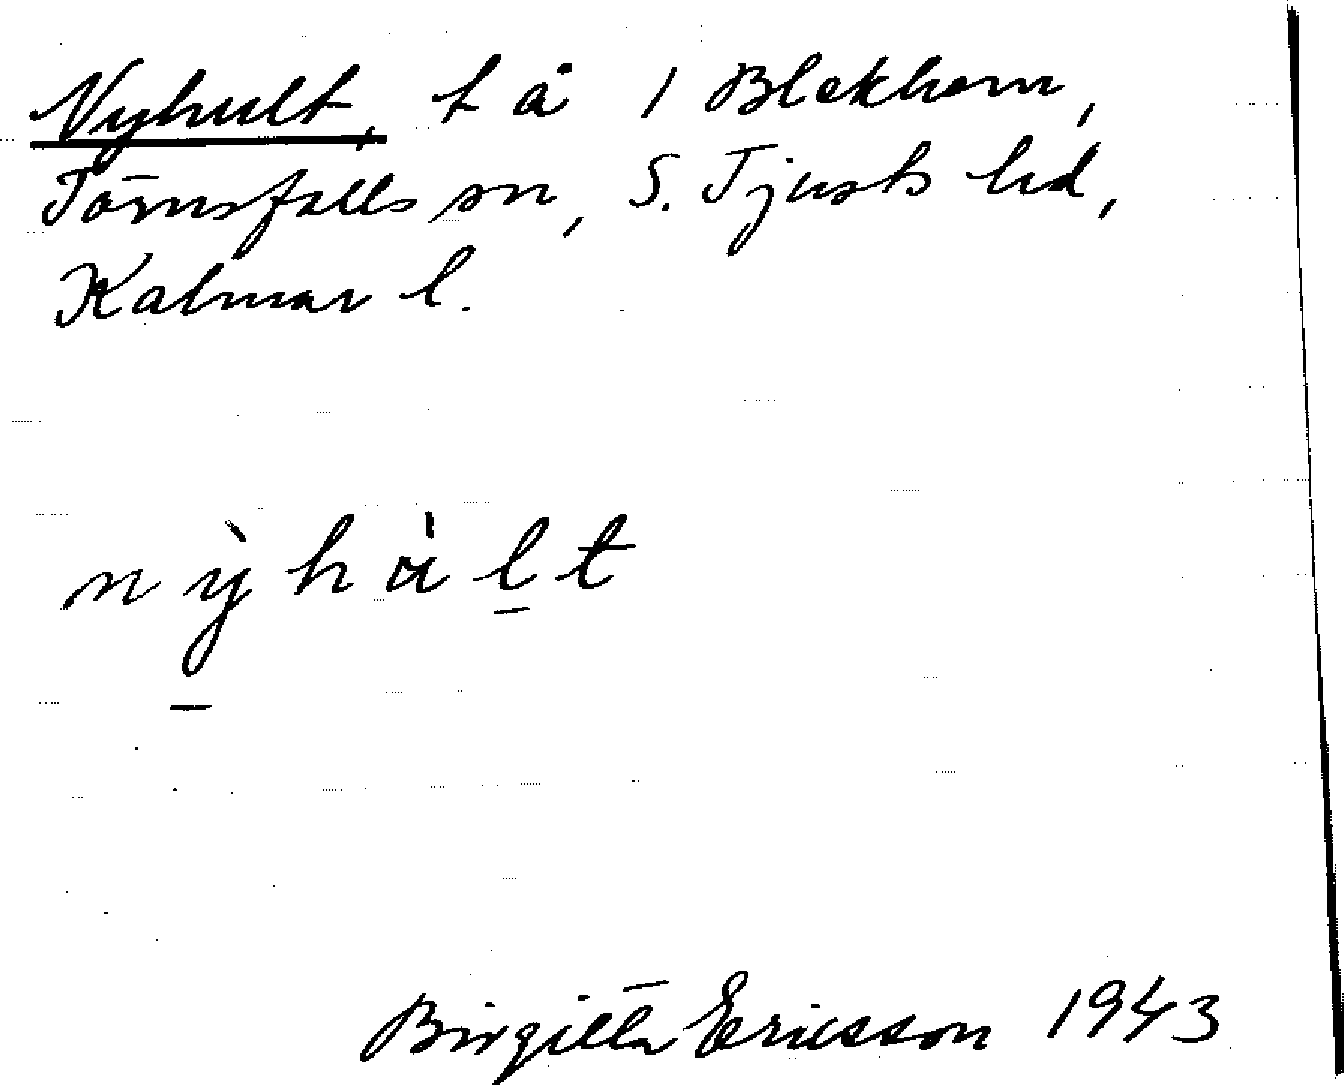 Nyhult, t å 1 Blekhem,
Törnsfalls sn, S. Tjusts hd,
Kalmar l.
Birgitta Ericsson 1943